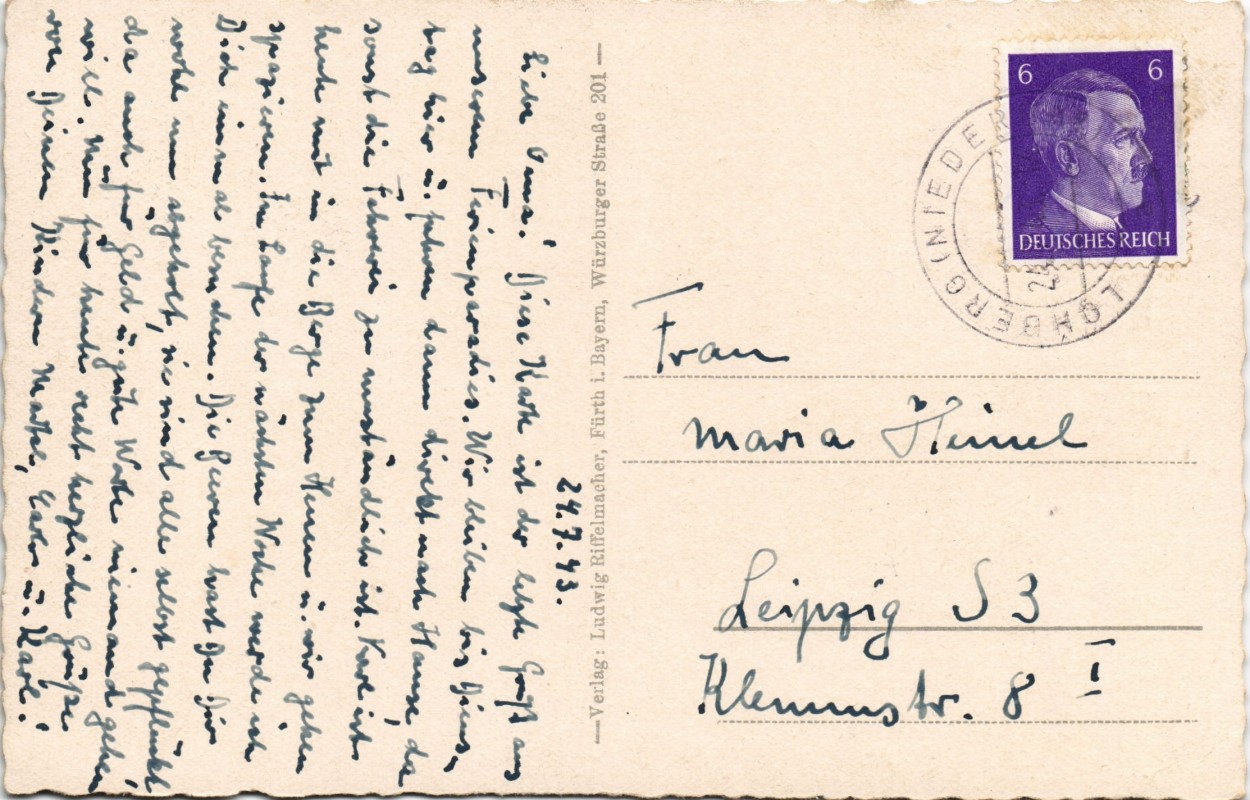 24.7.43.
Liebe Oma! Diese Karte ist der letzte Gruß aus
unserem Ferienparadies. Wir bleiben bis Diens-
tag hier u. fahren dann direkt nach Hause, da
sonst die Fahrerei zu umständlich ist. Karl ist
heute mit in die Berge zum Heuen u. wir gehen
spazieren. Im Laufe der nächsten Woche werde ich
Dich einmal besuchen. Die Beeren hast Du Dir
wohl nun abgeholt, sie sind alle selbst gepflückt
da auch für Geld u. gute Worte niemand gehen
will. Nun für heute recht herzliche Grüße
von Deinen Kindern Martel, u. Karl.
—Verlag: Ludwig Riffelmacher, Fürth i. Bayern, Würzburger Straße 201—
6 6
DEUTSCHES REICH
Frau
Maria Heinel
Leipzig S 3
Klemmstr. 8 I